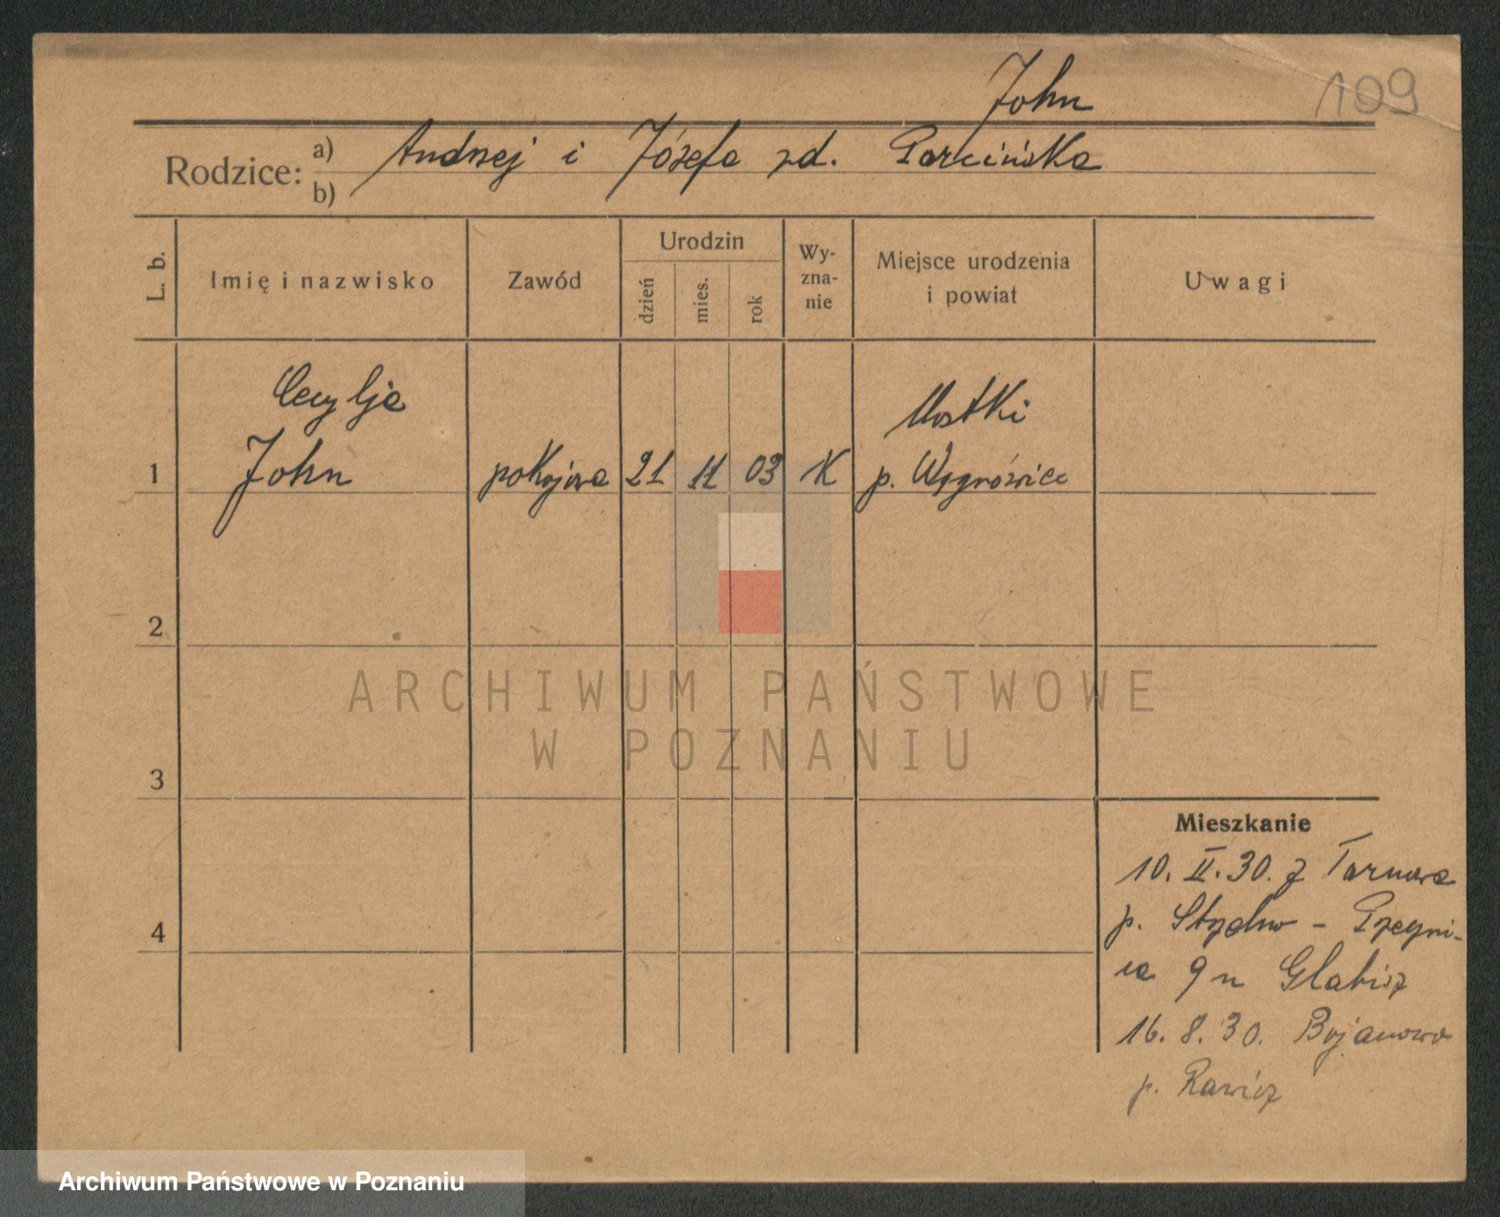 John
109
Rodzice:
a) Andrzej i Józefa zd. Parcińska
b)
L. b.
Imię i nazwisko
Zawód
Urodzin
dzień
mies.
rok
Wy-
zna-
nie
Miejsce urodzenia
i powiat
Uwagi
Cecylja
Mostki
1 John pokojowa 21 11 03 K p. Wągrówiec
2
ARCHIWUM PAŃSTWOWE
W POZNANIU
3
Mieszkanie
10. II. 30. z Tarnowa
p.
4
9 n Glabisz
16. 8. 30. Bojanowo
p. Rawicz
Archiwum Państwowe w Poznaniu